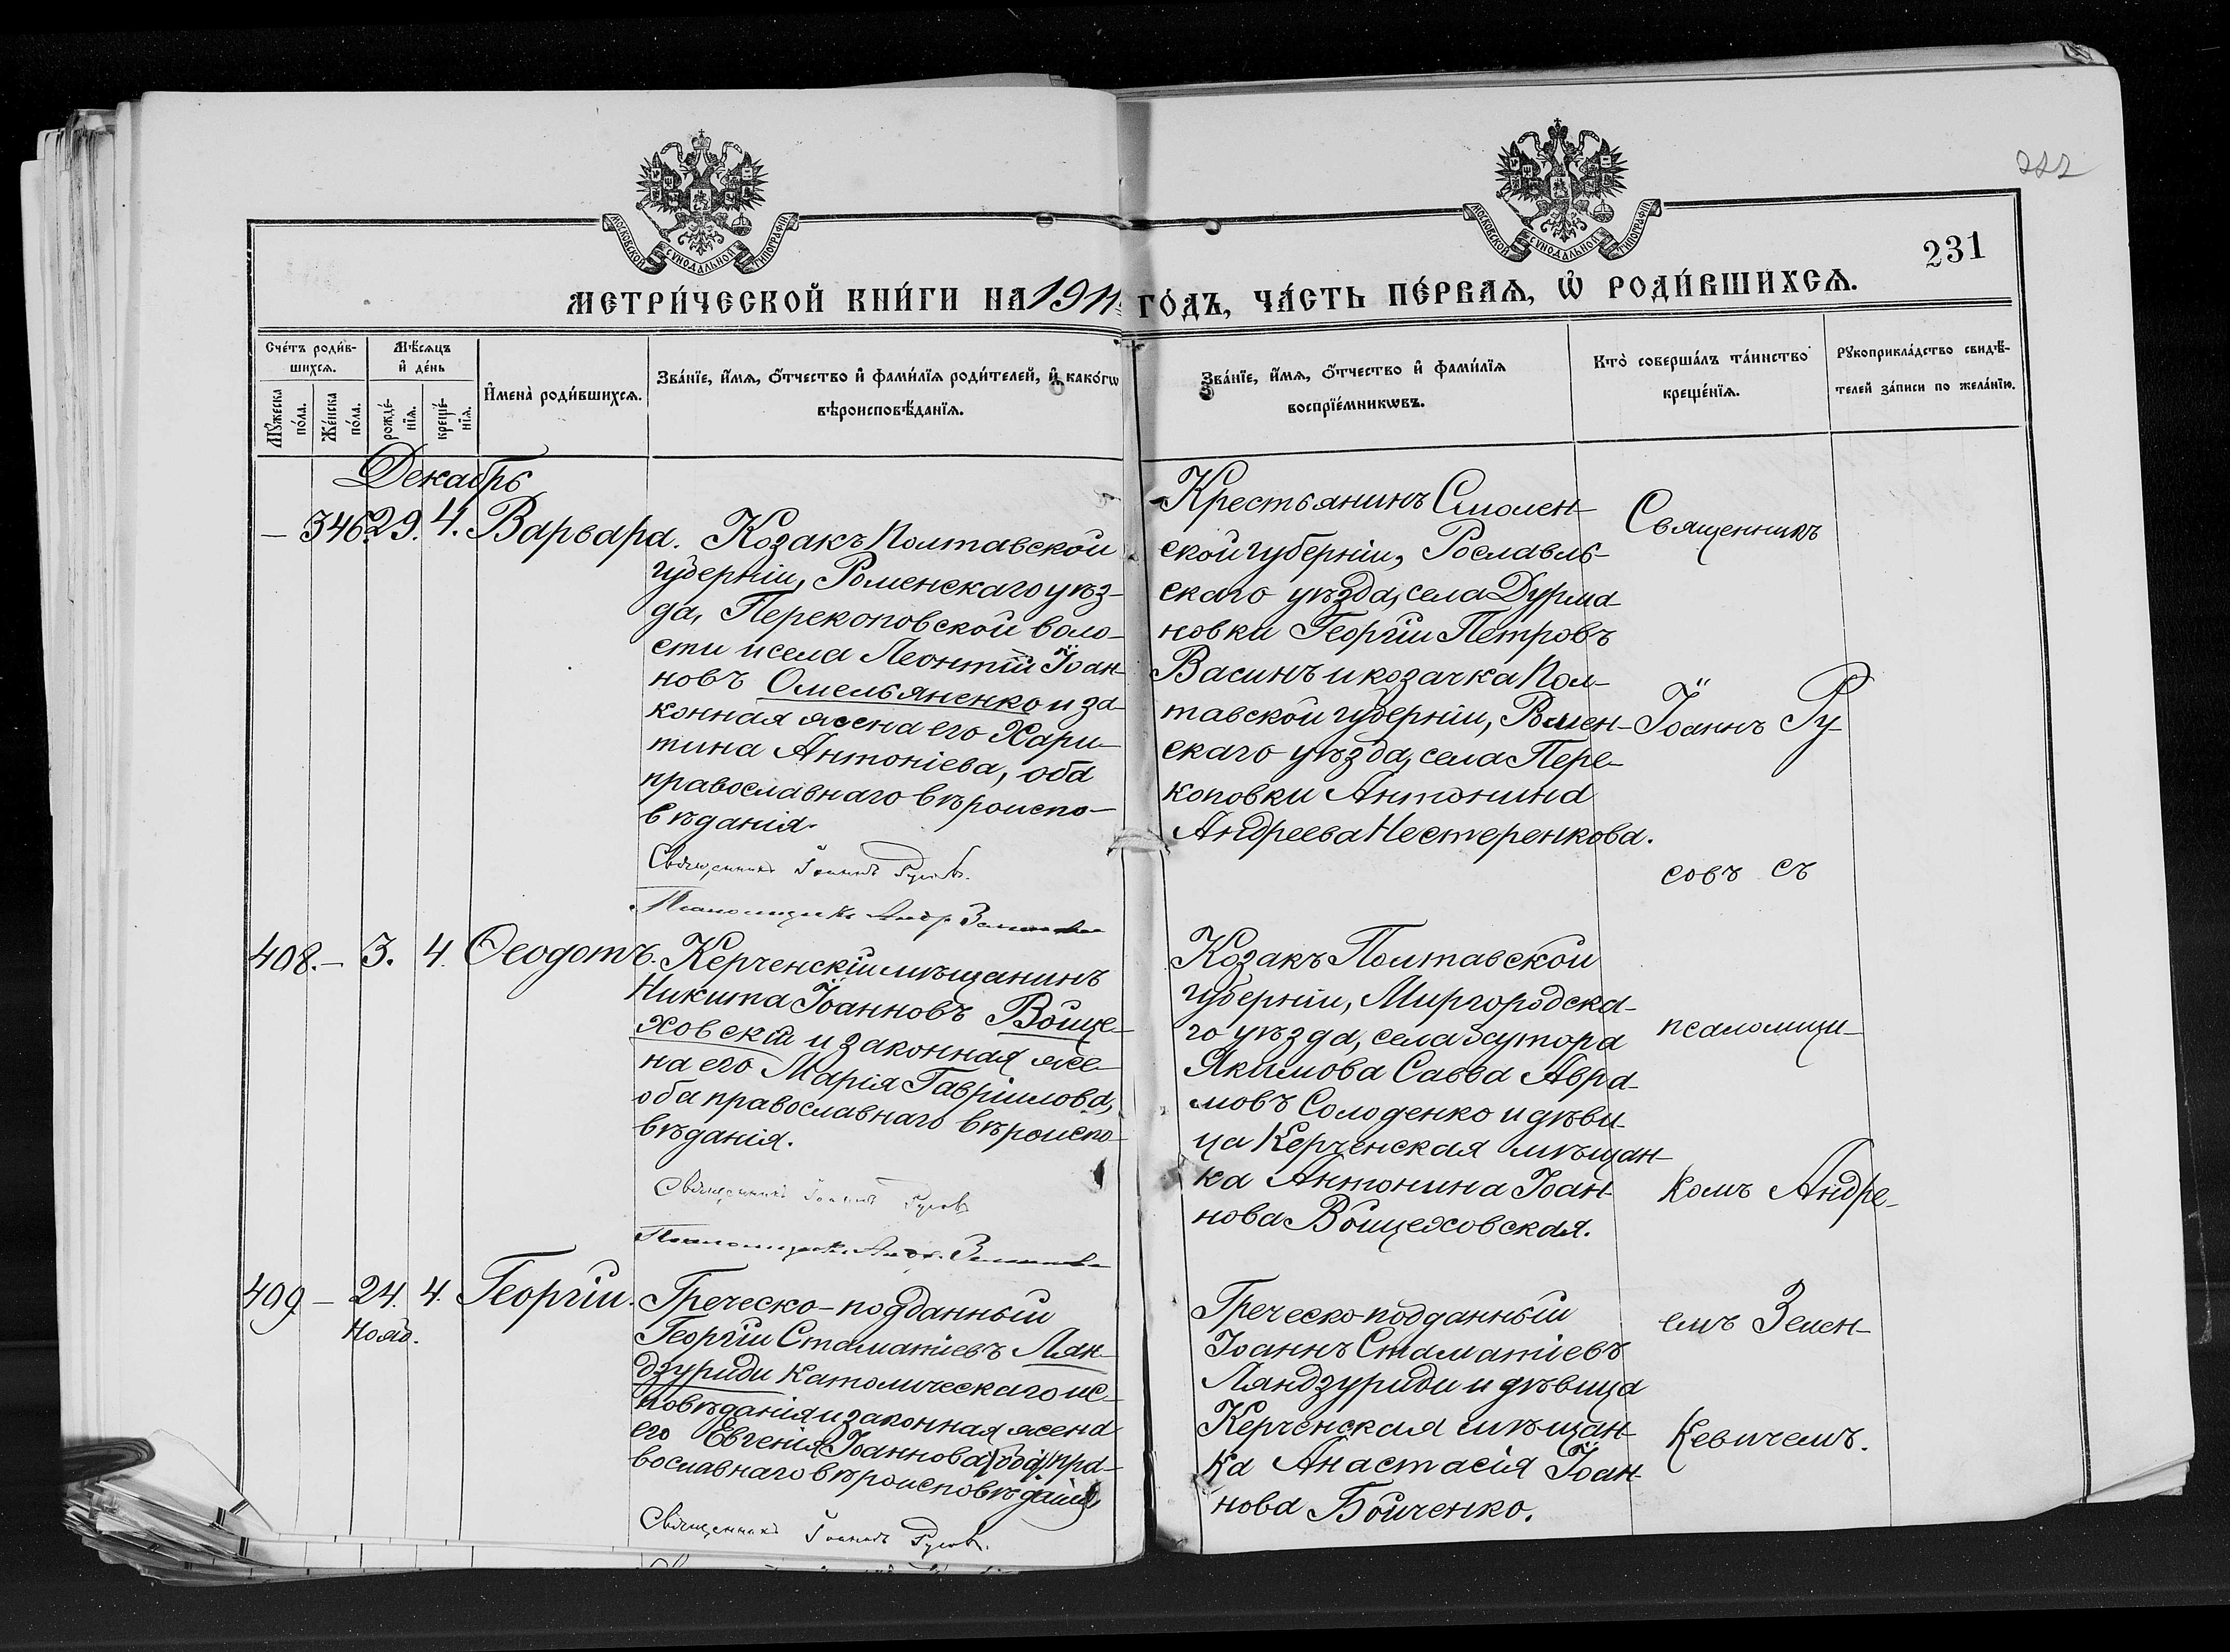 222
231
МОСКОВСКОЙ СУНОДАЛЬНОЙ ТИПОГРАФІИ
МОСКОВСКОЙ СУНОДАЛЬНОЙ ТИПОГРАФІИ
МЕТРИ́ЧЕСКОЙ КНИ́ГИ НА 1911 ГО́ДЪ, ЧА́СТЬ ПЕ́РВАѦ, Ѡ҆ РОДИ́ВШИХСѦ.
Сче́тъ роди́в-
шихсѧ.
Мꙋ́жеска
по́ла.
Же́нска
по́ла.
Мѣ́сѧцъ
и҆ де́нь
рожде́-
нїѧ.
креще́-
нїѧ.
И҆мена̀ роди́вшихсѧ.
Зва́нїе, и҆́мѧ, ѻ҆́тчество и҆ фами́лїѧ роди́телей, и҆ како́гѡ
вѣроисповѣ́данїѧ.
Зва́нїе, и҆́мѧ, ѻ҆́тчество и҆ фами́лїѧ
воспрїе́мникѡвъ.
Кто̀ соверша́лъ та́инство
креще́нїѧ.
Рꙋкоприкла́дство свидѣ́-
телей за́писи по жела́нїю.
Декабрь
— 346. 29. 4. Варвара.
Козакъ Полтавской
губерніи, Роменскаго уѣз-
да, Перекоповской воло-
сти и села Леонтій Іоан-
новъ Омельяненко и за-
конная жена его Хари-
тина Антоніева, оба
православнаго вѣроиспо-
вѣданія.
Священникъ Іоаннъ Русовъ.
Псаломщикъ Андр. Земенкевичъ
Крестьянинъ Смолен-
ской губерніи, Рославль-
скаго уѣзда, села Дурма-
новки Георгій Петровъ
Васинъ и козачка Пол-
тавской губерніи, Ромен-
скаго уѣзда, села Пере-
коповки Антонина
Андреева Нестеренкова.
Священникъ
Іоаннъ Ру-
совъ съ
псаломщи-
комъ Андре-
емъ Земен-
кевичемъ.
408. — 3. 4. Ѳеодотъ.
Керченскій мѣщанинъ
Никита Іоанновъ Войце-
ховскій и законная же-
на его Марія Гавріилова,
оба православнаго вѣроиспо-
вѣданія.
Священникъ Іоаннъ Русовъ
Псаломщикъ Андр. Земенкевичъ
Козакъ Полтавской
губерніи, Миргородска-
го уѣзда, села хутора
Якимова Савва Авра-
мовъ Солоденко и дѣви-
ца Керченская мѣщан-
ка Антонина Іоан-
нова Войцеховская.
409 — 24. 4. Георгій.
Нояб.
Греческо-подданный
Георгій Стаматіевъ Лян-
дзуриди католическаго ис-
повѣданія и законная жена
его Евгенія Іоаннова (оба) пра-
вославнаго вѣроисповѣданія
Священникъ Іоаннъ Русовъ.
Греческо-подданный
Іоаннъ Стаматіевъ
Ляндзуриди и дѣвица
Керченская мѣщан-
ка Анастасія Іоан-
нова Бойченко.